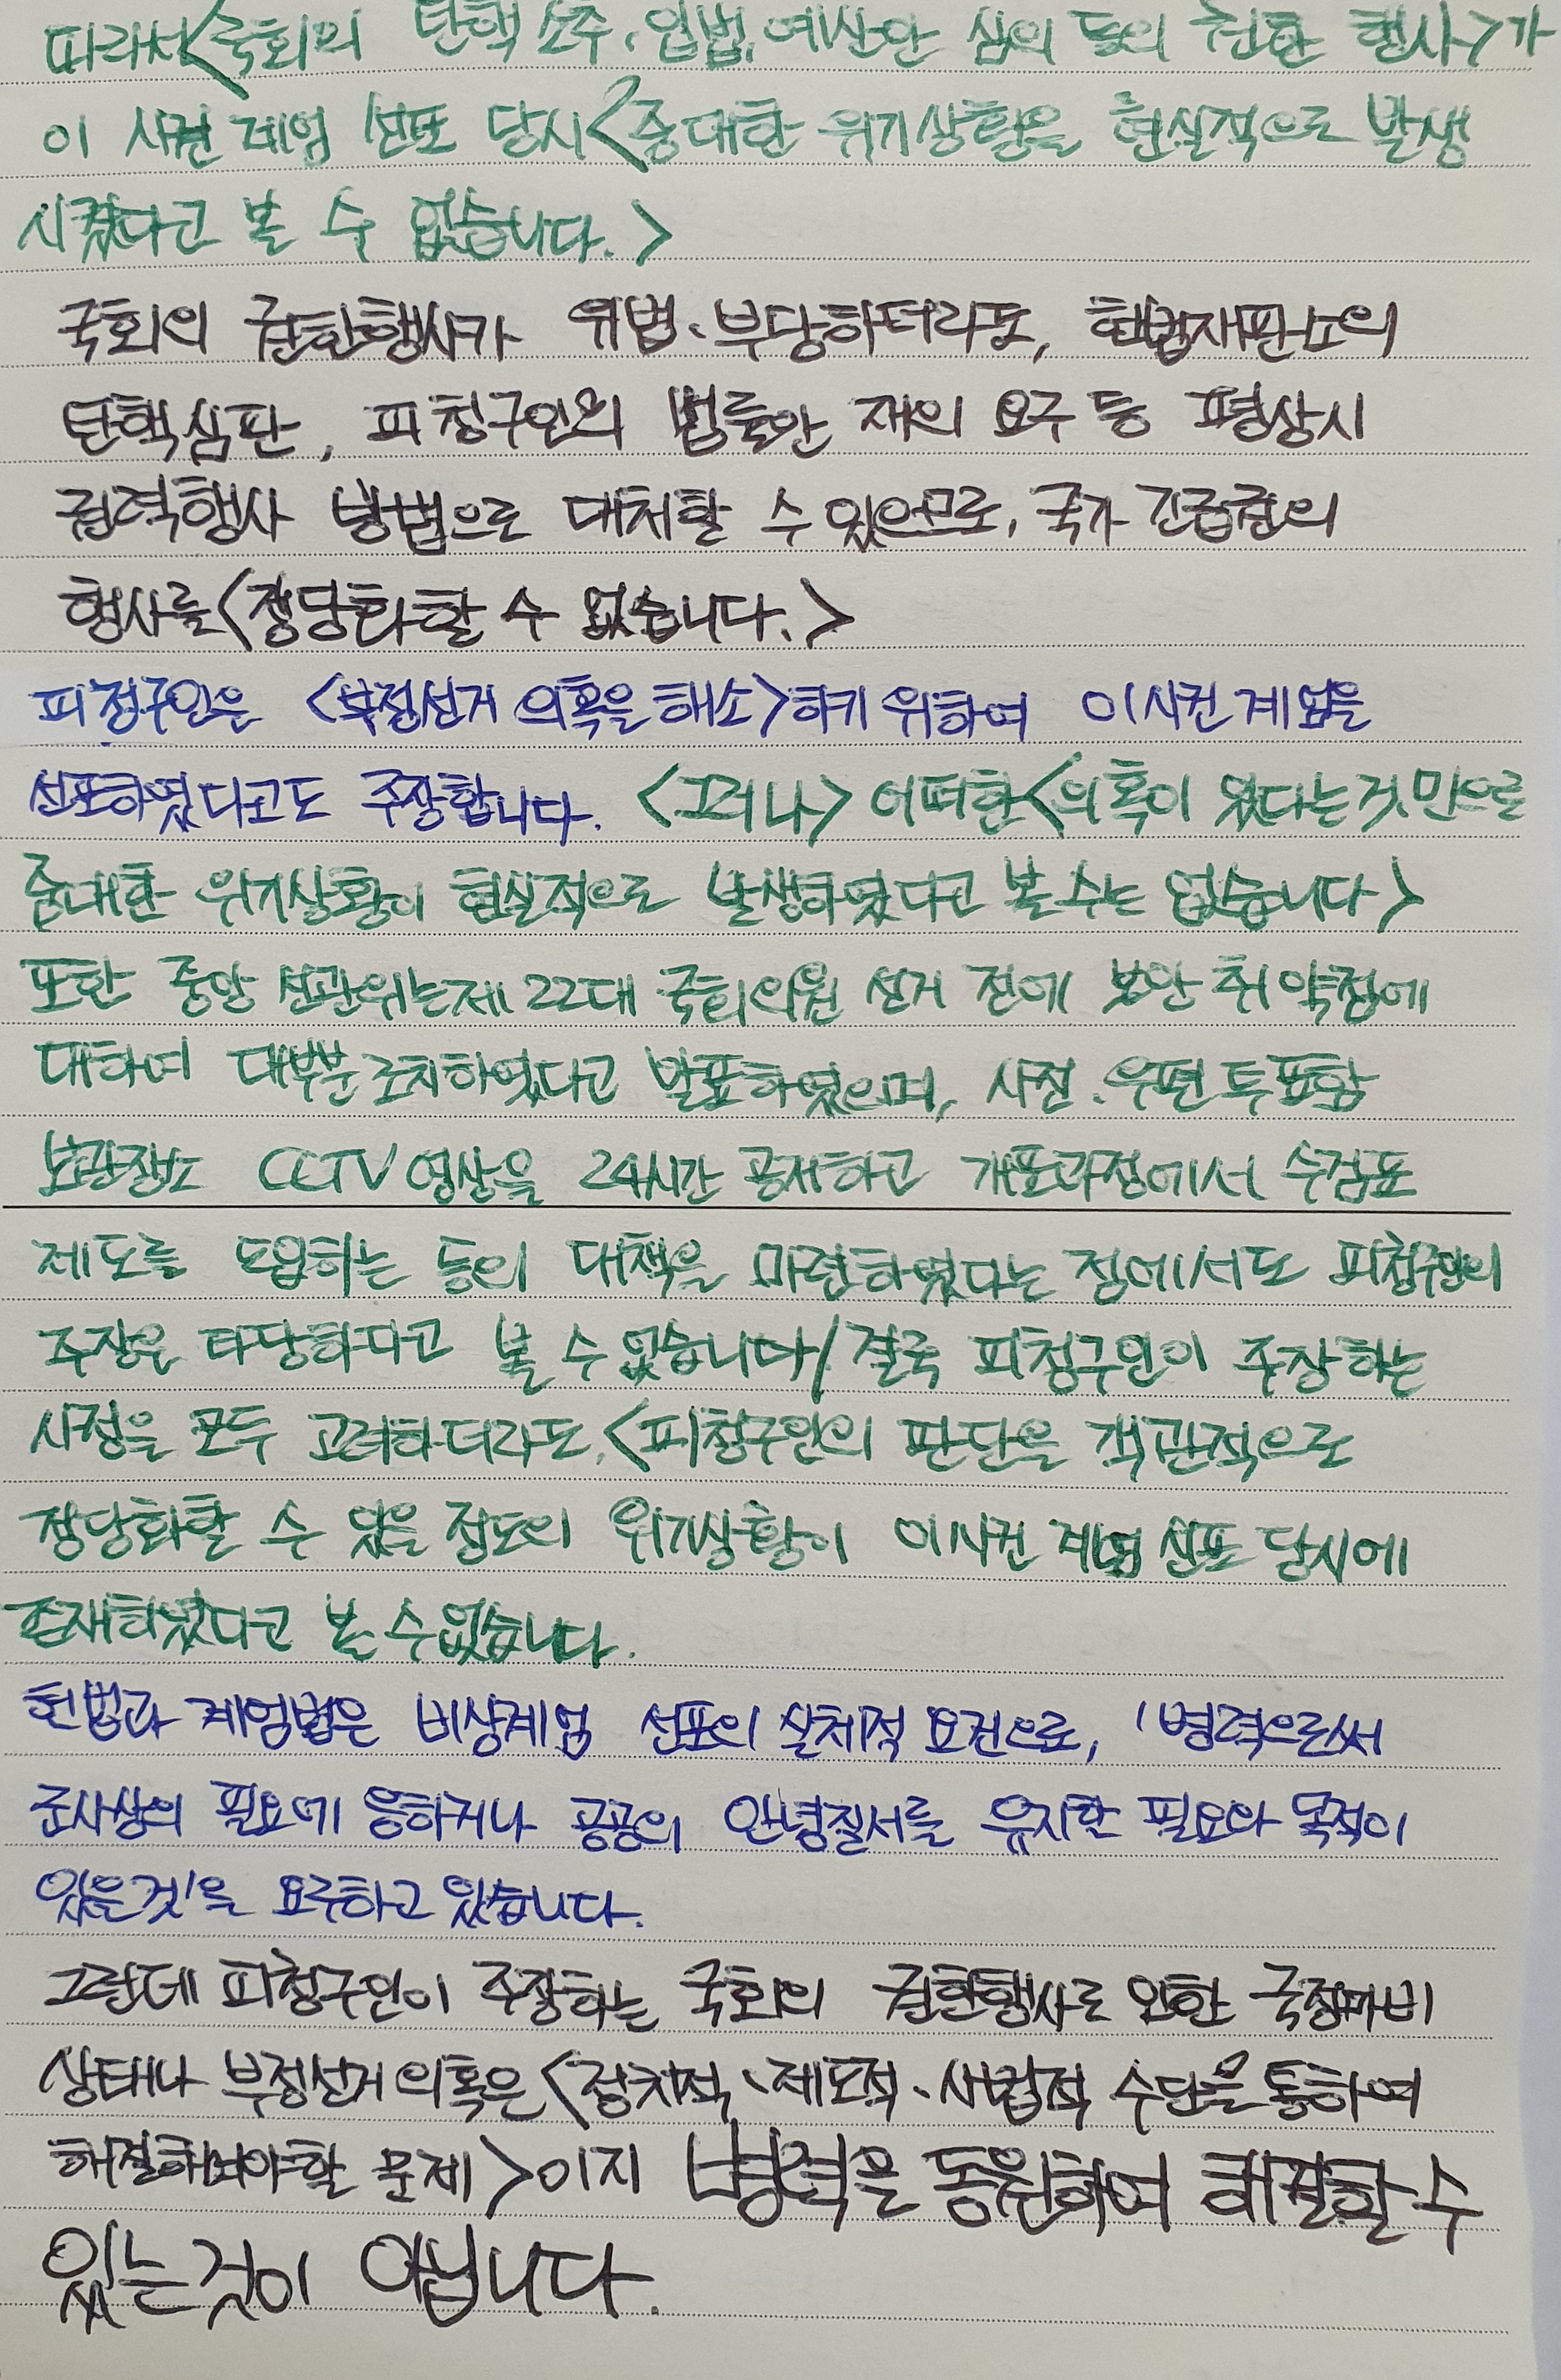 따라서<국회의 탄핵소추, 입법, 예산안 심의 등의 권한 행사>가
이 사건 계엄 선포 당시<중대한 위기상황을 현실적으로 발생
시켰다고 볼 수 없습니다.>
국회의 권한행사가 위법·부당하더라도, 헌법재판소의
탄핵심판, 피청구인의 법률안 재의 요구 등 평상시
권력행사 방법으로 대처할 수 있으므로, 국가 긴급권의
행사를<정당화할 수 없습니다.>
피청구인은 <부정선거 의혹을 해소>하기 위하여 이사건 계엄을
선포하였다고도 주장합니다. <그러나> 어떠한<의혹이 있다는것만으로
중대한 위기상황이 현실적으로 발생하였다고 볼수는 없습니다>
또한 중앙 선관위는제22대 국회의원 선거 전에 보안 취약점에
대하여 대부분 조치하였다고 발표하였으며, 사전·우편 투표함
보관장소 CCTV영상을 24시간 공개하고 개표과정에서 수검표
제도를 도입하는 등의 대책을 마련하였다는 점에서도 피청구인의
주장은 타당하다고 볼 수 없습니다/결국 피청구인이 주장하는
사정을 모두 고려하더라도,<피청구인의 판단을 객관적으로
정당화할 수 있을 정도의 위기상황이 이사건 계엄 선포 당시에
존재하였다고 볼 수없습니다.
헌법과 계엄법은 비상계엄 선포의 실체적 요건으로, '병력으로써
군사상의 필요에 응하거나 공공의 안녕질서를 유지할 필요와 목적이
있을것'을 요구하고 있습니다.
그런데 피청구인이 주장하는 국회의 권한행사로 인한 국정마비
상태나 부정선거 의혹은<정치적·제도적·사법적 수단을 통하여
해결해야할 문제>이지 병력을 동원하여 해결할 수
있는것이 아닙니다.